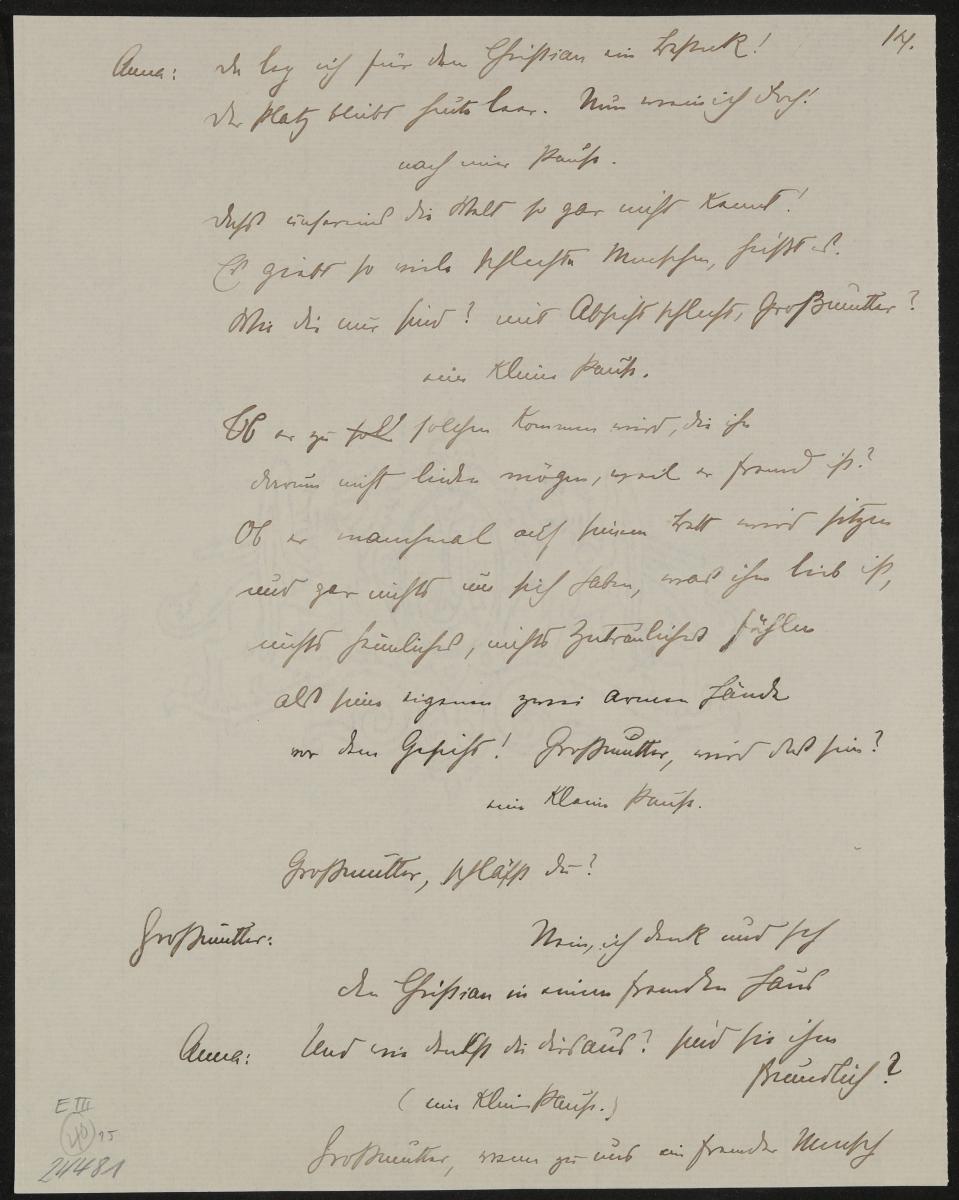 14.
Anna: da leg ich für den Christian ein Besteck!
der Platz bleibt heute leer. Nun wein ich doch!
nach einer Pause.
dass unsereins die Welt so gar nicht kennt!
Es giebt so viele schlechte Menschen, heißt es.
Wie die nur sind? mit Absicht schlecht, Großmutter?
eine kleine Pause.
Ob er zu solchen kommen wird, die ihn
darum nicht leiden mögen, weil er fremd ist?
Ob er manchmal auf seinem Bett wird sitzen
und gar nichts um sich haben, was ihm lieb ist,
nichts heimliches, nichts Zutrauliches fühlen
als seine eigenen zwei armen Hände
vor dem Gesicht! Großmutter, wird das sein?
eine kleine Pause.
Großmutter, schläfst du?
Großmutter: Nein, ich denk und seh
den Christian in einem fremden Haus
Anna: Und wie denkst du dirs aus? sind sie ihm
freundlich?
(eine kleine Pause.)
Großmutter, wenn zu uns ein fremder Mensch
E III
40 15
24481